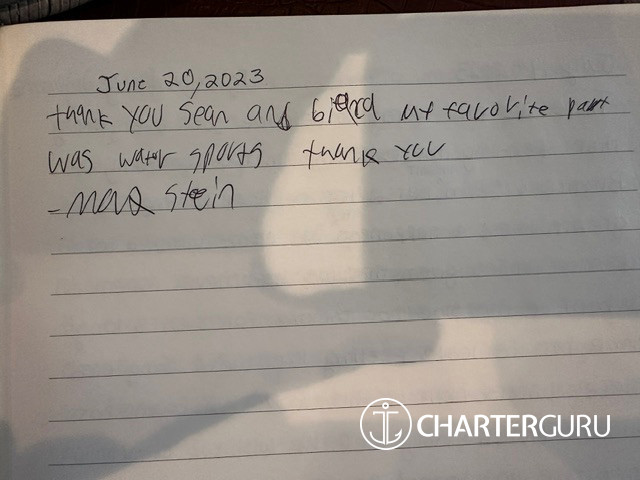 June 20, 2023
thank you Sean and my favorite part
was water sports thank you
- Stein
CHARTERGURU